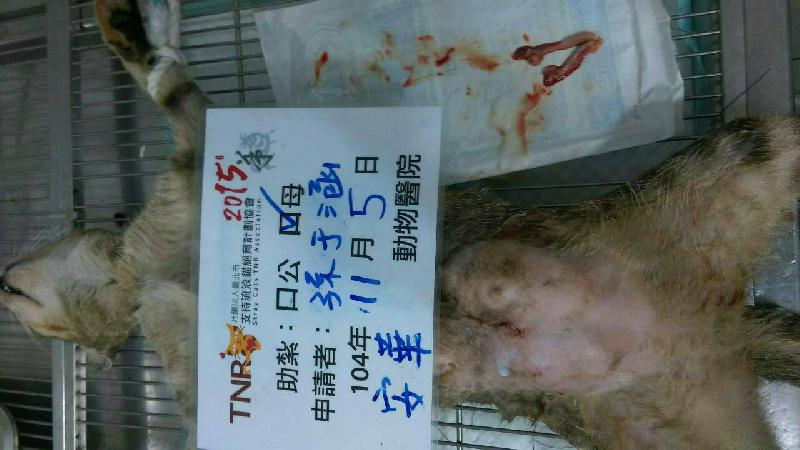 TNR
社團法人臺北市
支持流浪貓絕育計劃協會
Stray Cats TNR Association
2015'
助紮：□公 ☑母
申請者：孫于涵
104年 11月 5日
安華 動物醫院